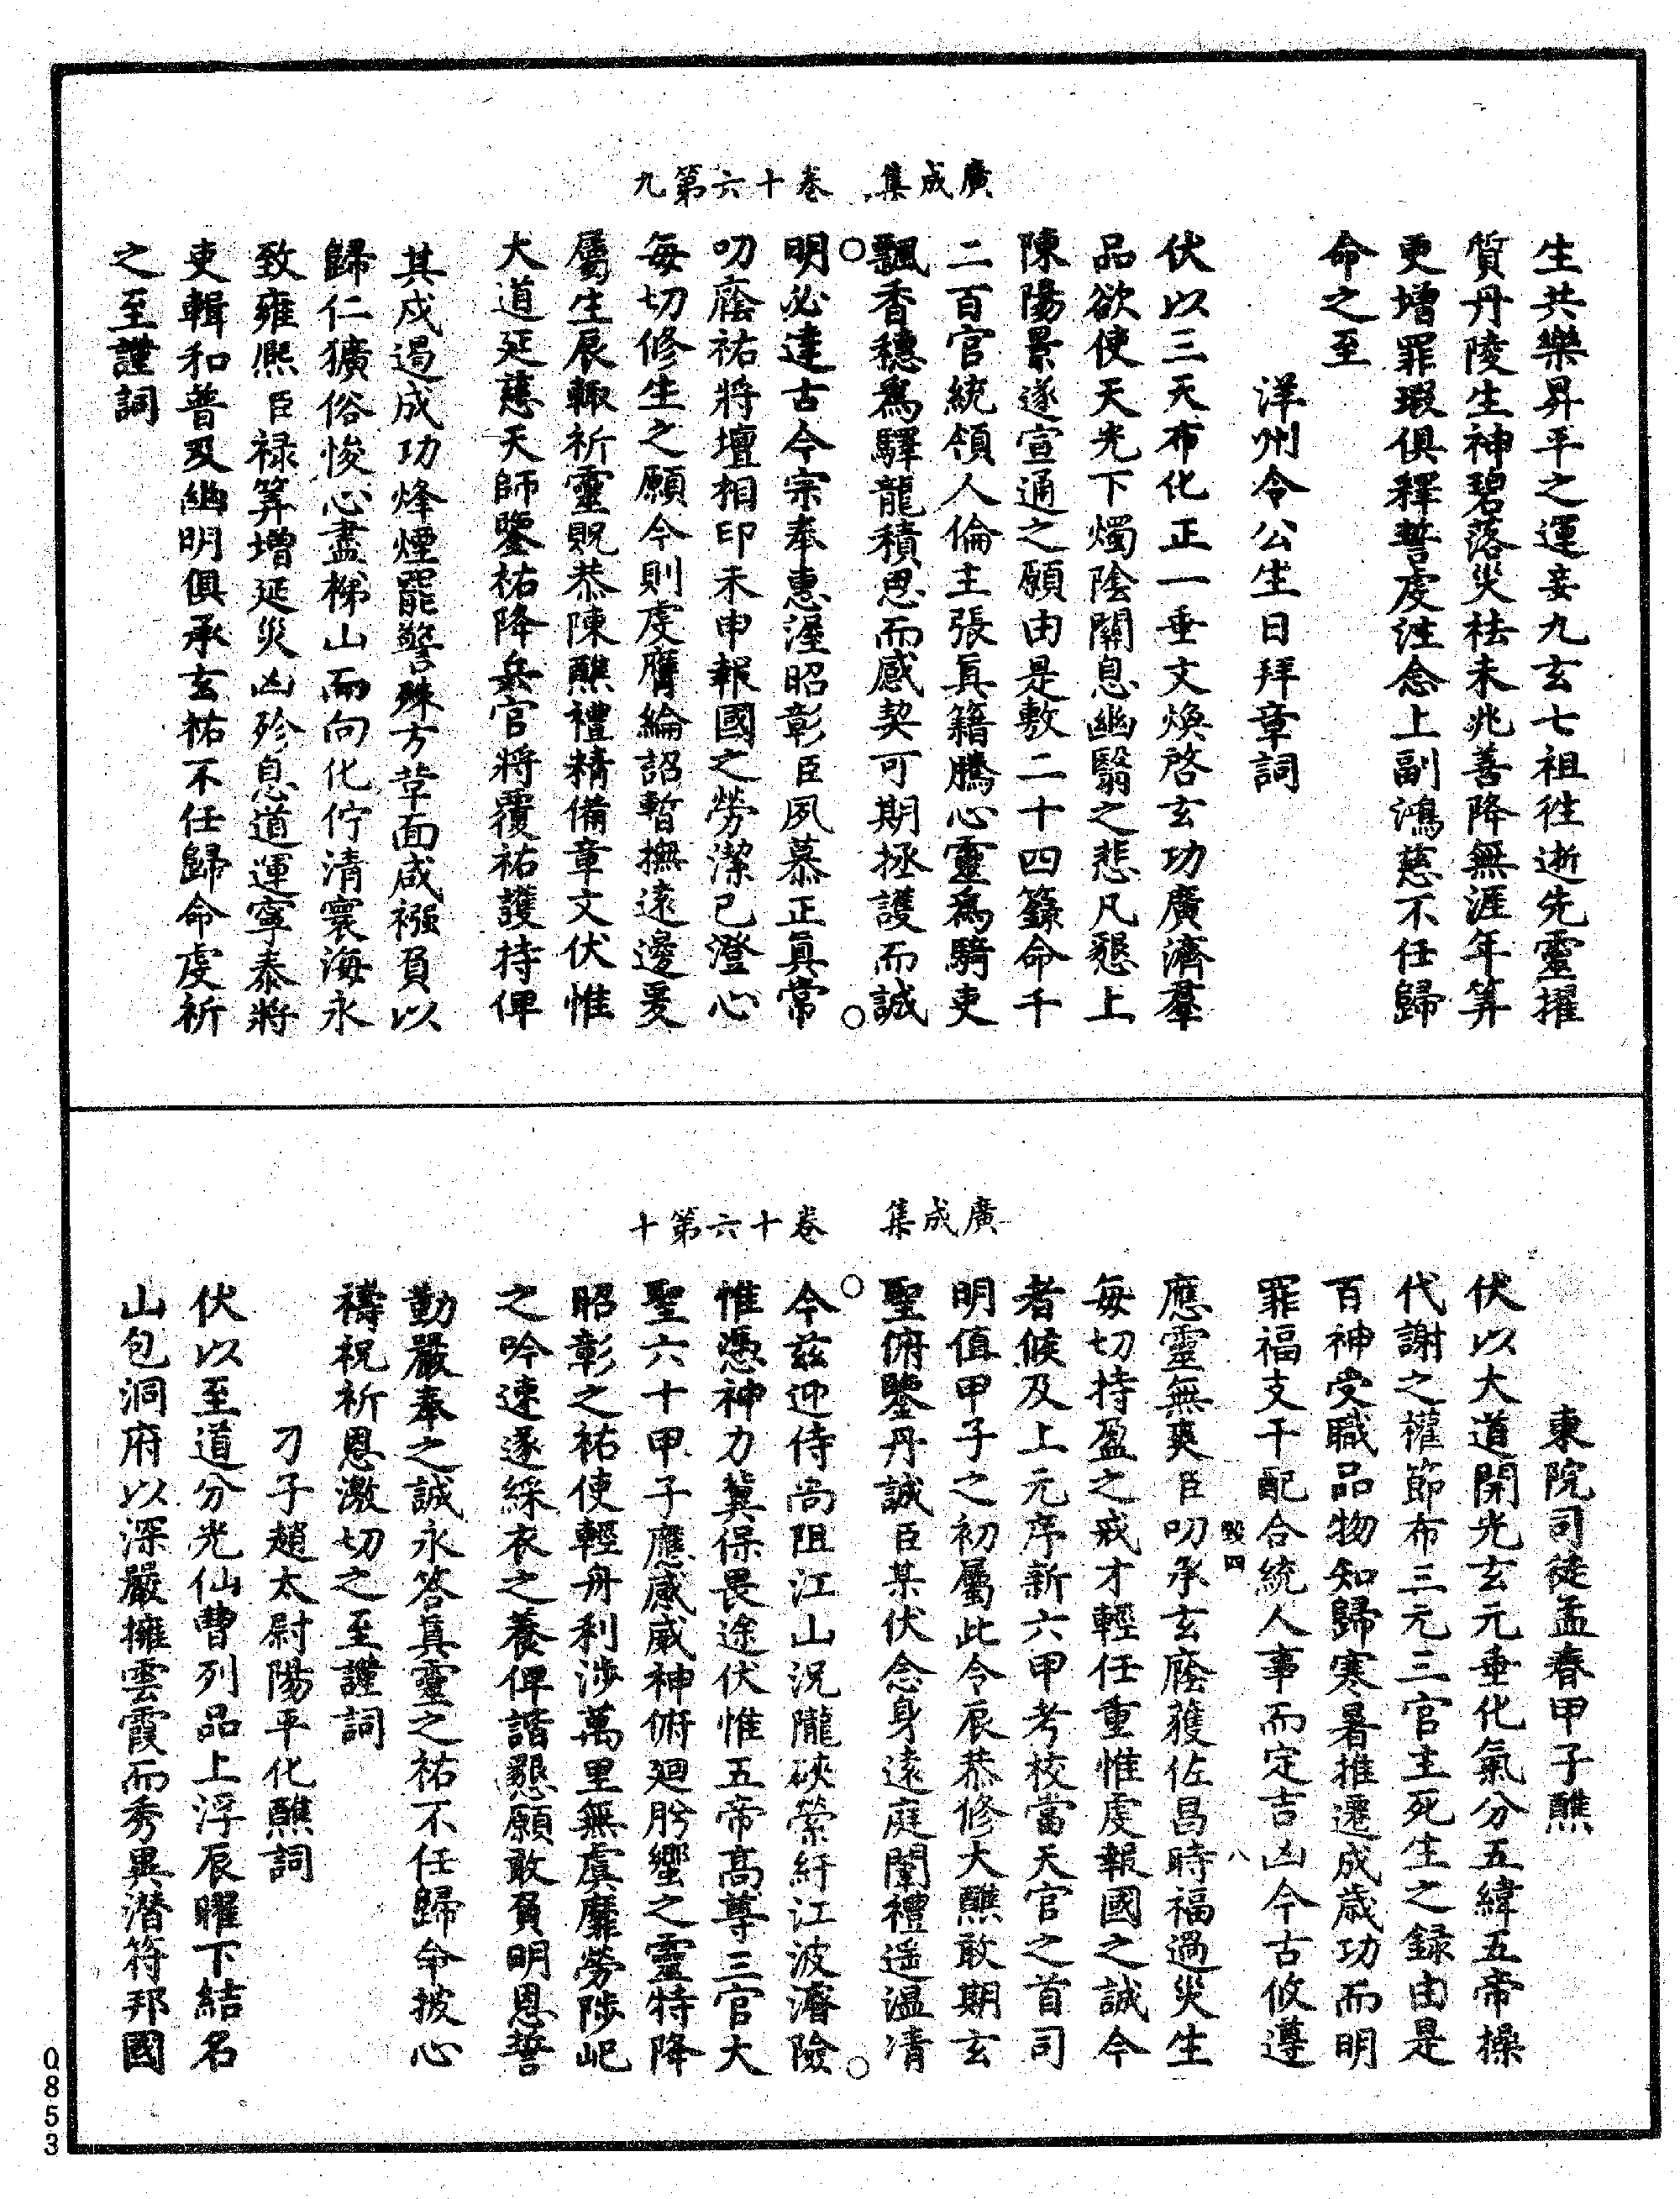 廣成集　卷十六第九
生共樂昇平之運妾九玄七祖徃逝先靈擢
質丹陵生神碧落災祛未兆善降無涯年筭
更增罪瑕俱釋誓虔注念上副鴻慈不任歸
命之至
洋州令公生日拜章詞
伏以三天布化正一垂文煥啓玄功廣濟羣
品欲使天光下燭陰關息幽翳之悲凡懇上
陳陽景遂宣通之願由是敷二十四籙命千
二百官統領人倫主張眞籍騰心靈爲騎吏
飄香穗爲驛龍積思而感契可期拯護而誠
明必達古今宗奉惠渥昭彰臣夙慕正眞常
叨廕祐將壇相印未申報國之勞潔己澄心
每切修生之願今則虔膺綸詔暫撫遠邊爰
屬生辰輙祈靈貺恭陳醮禮精備章文伏惟
大道延慈天師鑒祐降兵官將覆祐護持俾
其戍遏成功烽煙罷警殊方革面咸襁負以
歸仁獷俗悛心盡梯山而向化佇清寰海永
致雍熈臣禄筭增延災凶殄息道運寧泰將
吏輯和普及幽明俱承玄祐不任歸命虔祈
之至謹詞
廣成集　卷十六第十
東院司徒孟春甲子醮
伏以大道開光玄元垂化氣分五緯五帝操
代謝之權節布三元三官主死生之録由是
百神受職品物知歸寒暑推遷成歲功而明
罪福支干配合統人事而定吉凶今古攸遵
毀四　八
應靈無爽臣叨承玄廕獲佐昌時福過災生
每切持盈之戒才輕任重惟虔報國之誠今
者候及上元序新六甲考校當天官之首司
明值甲子之初屬此令辰恭修大醮敢期玄
聖俯鑒丹誠臣某伏念身遠庭闈禮遥溫凊
今兹迎侍尚阻江山況隴硤縈紆江波濬險
惟憑神力冀保畏途伏惟五帝高尊三官大
聖六十甲子應感威神俯迴肹蠁之靈特降
昭彰之祐使輕舟利涉萬里無虞靡勞陟屺
之吟速遂綵衣之養俾諧懇願敢負明恩誓
勤嚴奉之誠永答眞靈之祐不任歸命披心
禱祝祈恩激切之至謹詞
刁子趙太尉陽平化醮詞
伏以至道分光仙曹列品上浮辰曜下結名
山包洞府以深嚴擁雲霞而秀異潛符邦國
Q853